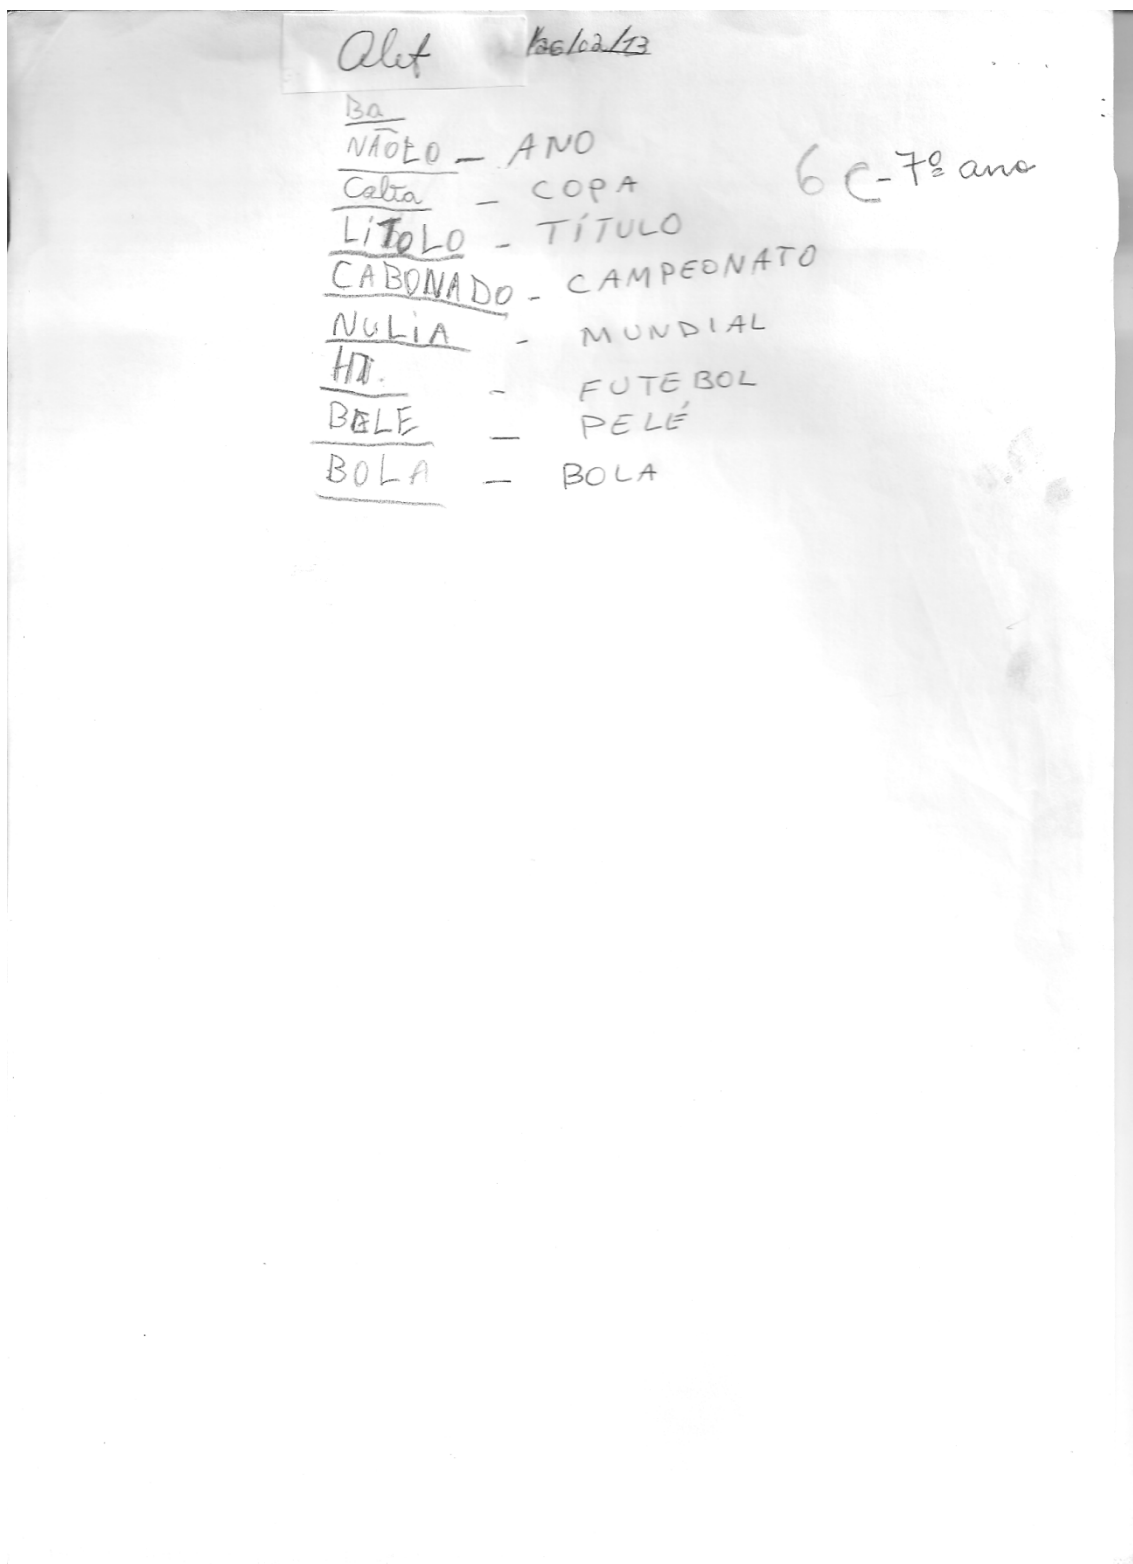 Alef 26/02/13
Ba
NÃOLO - ANO
6 C - 7º ano
Calta - COPA
LÍTOLO - TÍTULO
CABONADO - CAMPEONATO
NULIA - MUNDIAL
- FUTEBOL
BELE - PELÉ
BOLA - BOLA